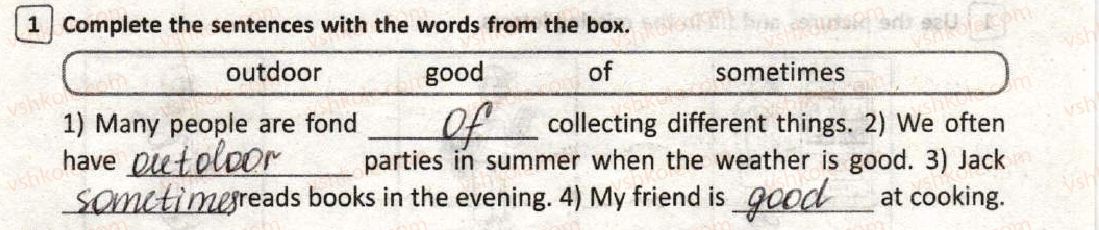 1 Complete the sentences with the words from the box.
outdoor good of sometimes
1) Many people are fond of collecting different things. 2) We often
have outdoor parties in summer when the weather is good. 3) Jack
sometimes reads books in the evening. 4) My friend is good at cooking.